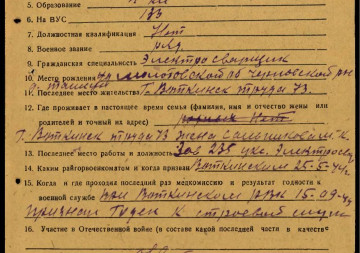 5. Образование 4 кл
6. На ВУС 133
7. Должностная квалификация Нет
8. Военное звание ряд.
9. Гражданская специальность Электросварщик
10. Место рождения Молотовской об Черновской р-н
11. Последнее место жительства г. Воткинск труда 73.
12. Где проживает в настоящее время семья (фамилия, имя и отчество жены или
родителей и точный их адрес)
г. Воткинск труда 73 жена
13. Последнее место работы и должность Зав 235 укс. Электросв
14. Каким райгорвоенкоматом и когда призван Воткинским 25-5-44 г
15. Когда и где проходил последний раз медкомиссию и результат годности к
военной службе при Воткинском РВК 15-09-44
признан Годен к строевой службе
16. Участие в Отечественной войне (в составе какой последней части и в качестве